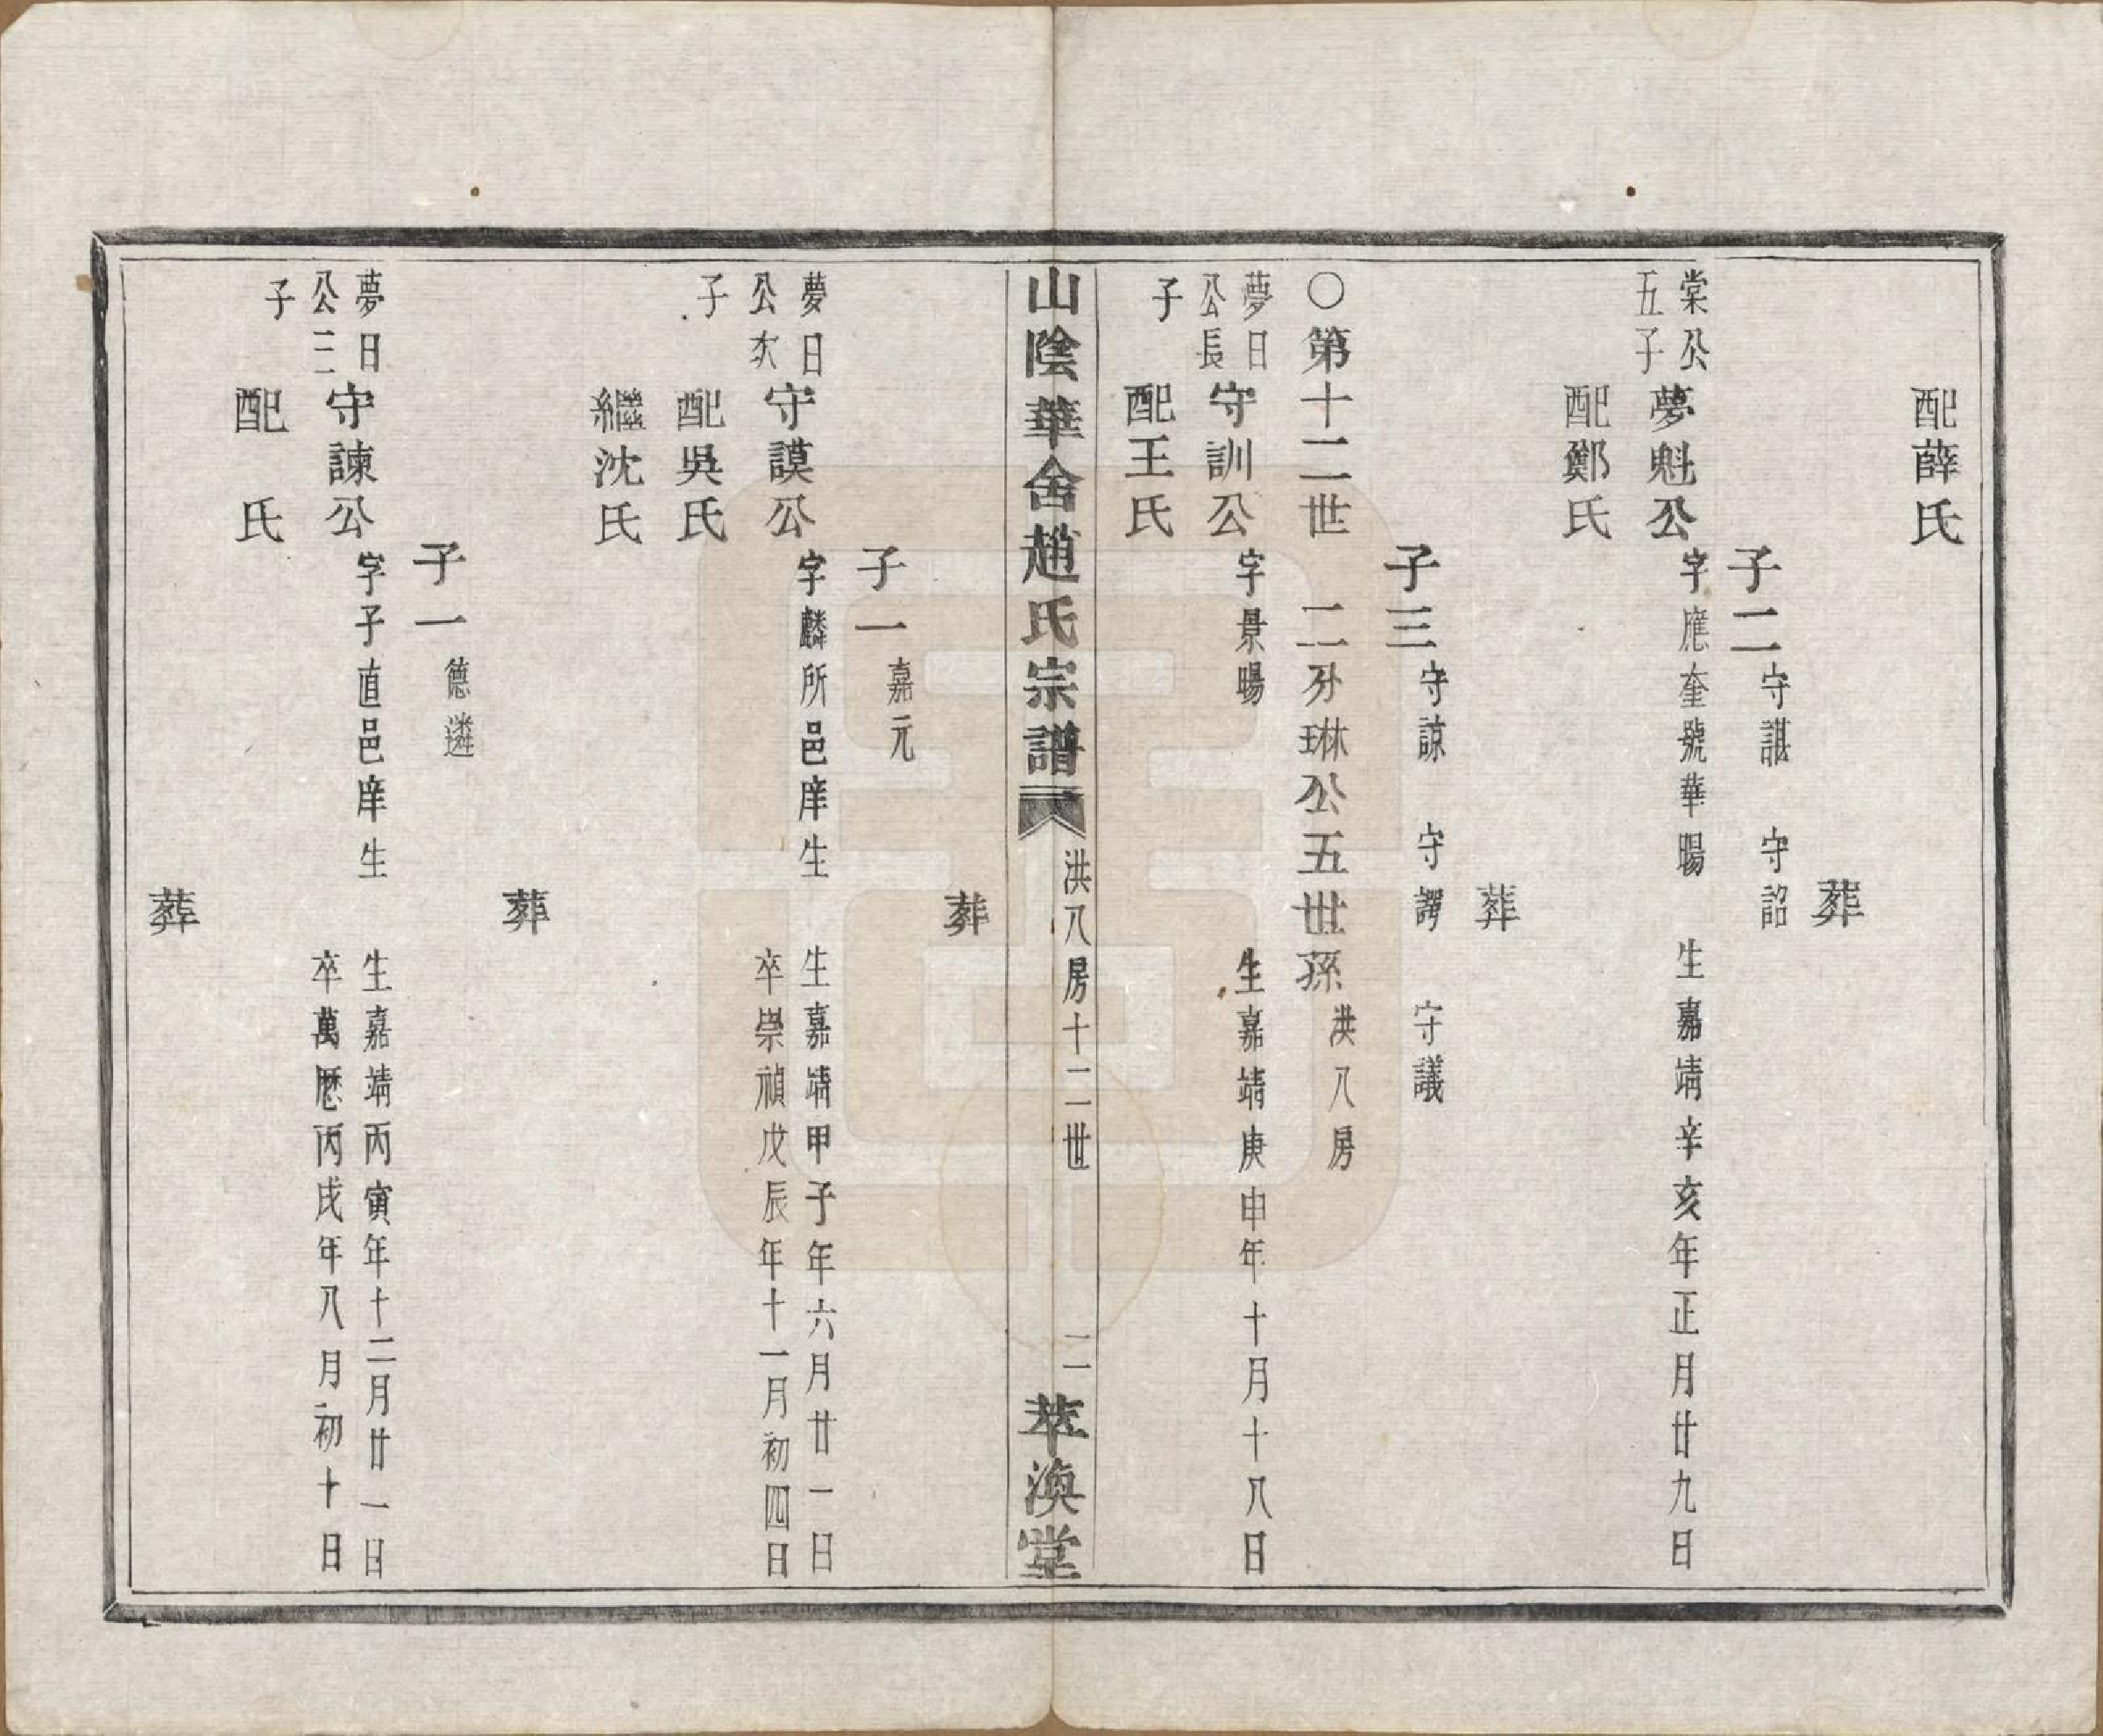 配薛氏
葬
子二守諶 守詔
棠公五子夢魁公字應奎號華暘 生嘉靖辛亥年正月廿九日
配鄭氏
葬
子三守諒 守諤 守議
○第十二世 二分琳公五世孫洪八房
夢日公長子守訓公字景暘 生嘉靖庚申年十月十八日
配王氏
山陰華舍趙氏宗譜 洪八房十二世 二 萃渙堂
葬
子一嘉元
夢日公次子守謨公字麟所邑庠生 生嘉靖甲子年六月廿一日
卒崇禎戊辰年十一月初四日
配吳氏
繼沈氏
葬
子一德遴
夢日公三子守諫公字子直邑庠生 生嘉靖丙寅年十二月廿一日
卒萬歷丙戌年八月初十日
配 氏
葬